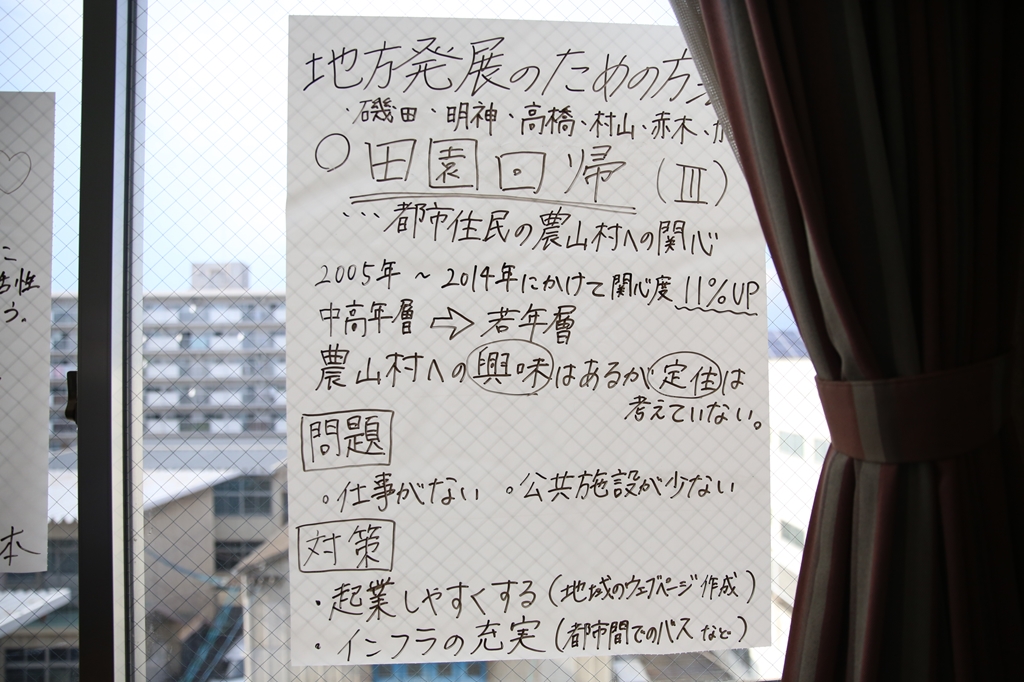 地方発展のための方
・磯田・明神・高橋・村山・赤木・
○田園回帰(Ⅲ)
…都市住民の農山村への関心
2005年～2014年にかけて関心度11%UP
中高年層⇨若年層
農山村への興味はあるが定住は
考えていない。
問題
。仕事がない 。公共施設が少ない
対策
・起業しやすくする(地域のウェブページ作成)
・インフラの充実(都市間でのバスなど)
こ
性
う。
本